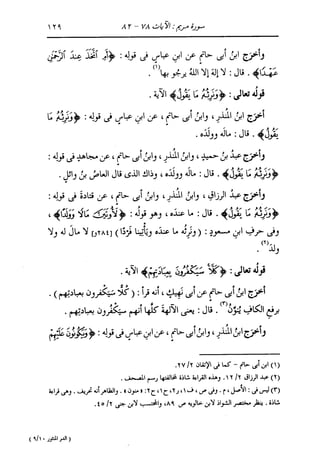 سورة مريم : الآيات ٧٨ - ٨٢
١٢٩
وأخرج ابنُ أبى حاتمٍ عن ابنِ عباسٍ فى قولِه : ﴿أَمِ ٱتَّخَذَ عِندَ ٱلرَّحْمَٰنِ
عَهْدًا﴾ . قال : لا إلهَ إلا اللهُ يرجو بها(١) .
قولُه تعالى : ﴿وَنَرِثُهُۥ مَا يَقُولُ﴾ الآية .
أخرَج ابنُ المنذرِ ، وابنُ أبى حاتمٍ ، عن ابنِ عباسٍ فى قولِه : ﴿وَنَرِثُهُۥ مَا
يَقُولُ﴾ . قال : مالَه وولدَه .
وأخرَج عبدُ بنُ حميدٍ ، وابنُ المنذرِ ، وابنُ أبى حاتمٍ ، عن مجاهدٍ فى قولِه :
﴿وَنَرِثُهُۥ مَا يَقُولُ﴾ . قال : مالَه وولدَه ، وذاك الذى قال العاصُ بنُ وائلٍ .
وأخرَج عبدُ الرزاقِ ، وابنُ المنذرِ ، وابنُ أبى حاتمٍ ، عن قتادةَ فى قولِه :
﴿وَنَرِثُهُۥ مَا يَقُولُ﴾ . قال : ما عندَه ، وهو قولُه : ﴿لَأُوتَيَنَّ مَالًا وَوَلَدًا﴾ ،
وفى حرفِ ابنِ مسعودٍ : (ونَرِثُه ما عندَه ويَأْتِينا فَرْدًا) [٢٨٤و] لا مالَ له ولا
ولدَ(٢) .
قولُه تعالى : ﴿كَلَّا سَيَكْفُرُونَ بِعِبَادَتِهِمْ﴾ الآية .
أخرَج ابنُ أبى حاتمٍ عن أبى نَهِيكٍ ، أنه قرَأ : (كُلًّا سَيَكْفُرون بعبادتِهم) .
برفعِ الكافِ يُنَوِّنُ(٣) . قال : يعنى الآلهةَ كلَّها أنهم سيَكْفُرون بعبادتِهم .
وأخرَج ابنُ المنذرِ ، وابنُ أبى حاتمٍ ، عن ابنِ عباسٍ فى قولِه : ﴿وَيَكُونُونَ عَلَيْهِمْ
(١) ابن أبى حاتم - كما فى الإتقان ٢٧/٢.
(٢) عبد الرزاق ١٢/٢. وهذه القراءة شاذة لمخالفتها رسم المصحف .
(٣) ليس فى : الأصل ، م . وفى ص ، ف١ ، ر٢ ، ح١ ، ح٢ : « منون » . والظاهر أنه تحريف . وهى قراءة
شاذة . ينظر مختصر الشواذ لابن خالويه ص ٨٩، والمحتسب لابن جنى ٤٥/٢.
( الدر المنثور ٩/١٠ )